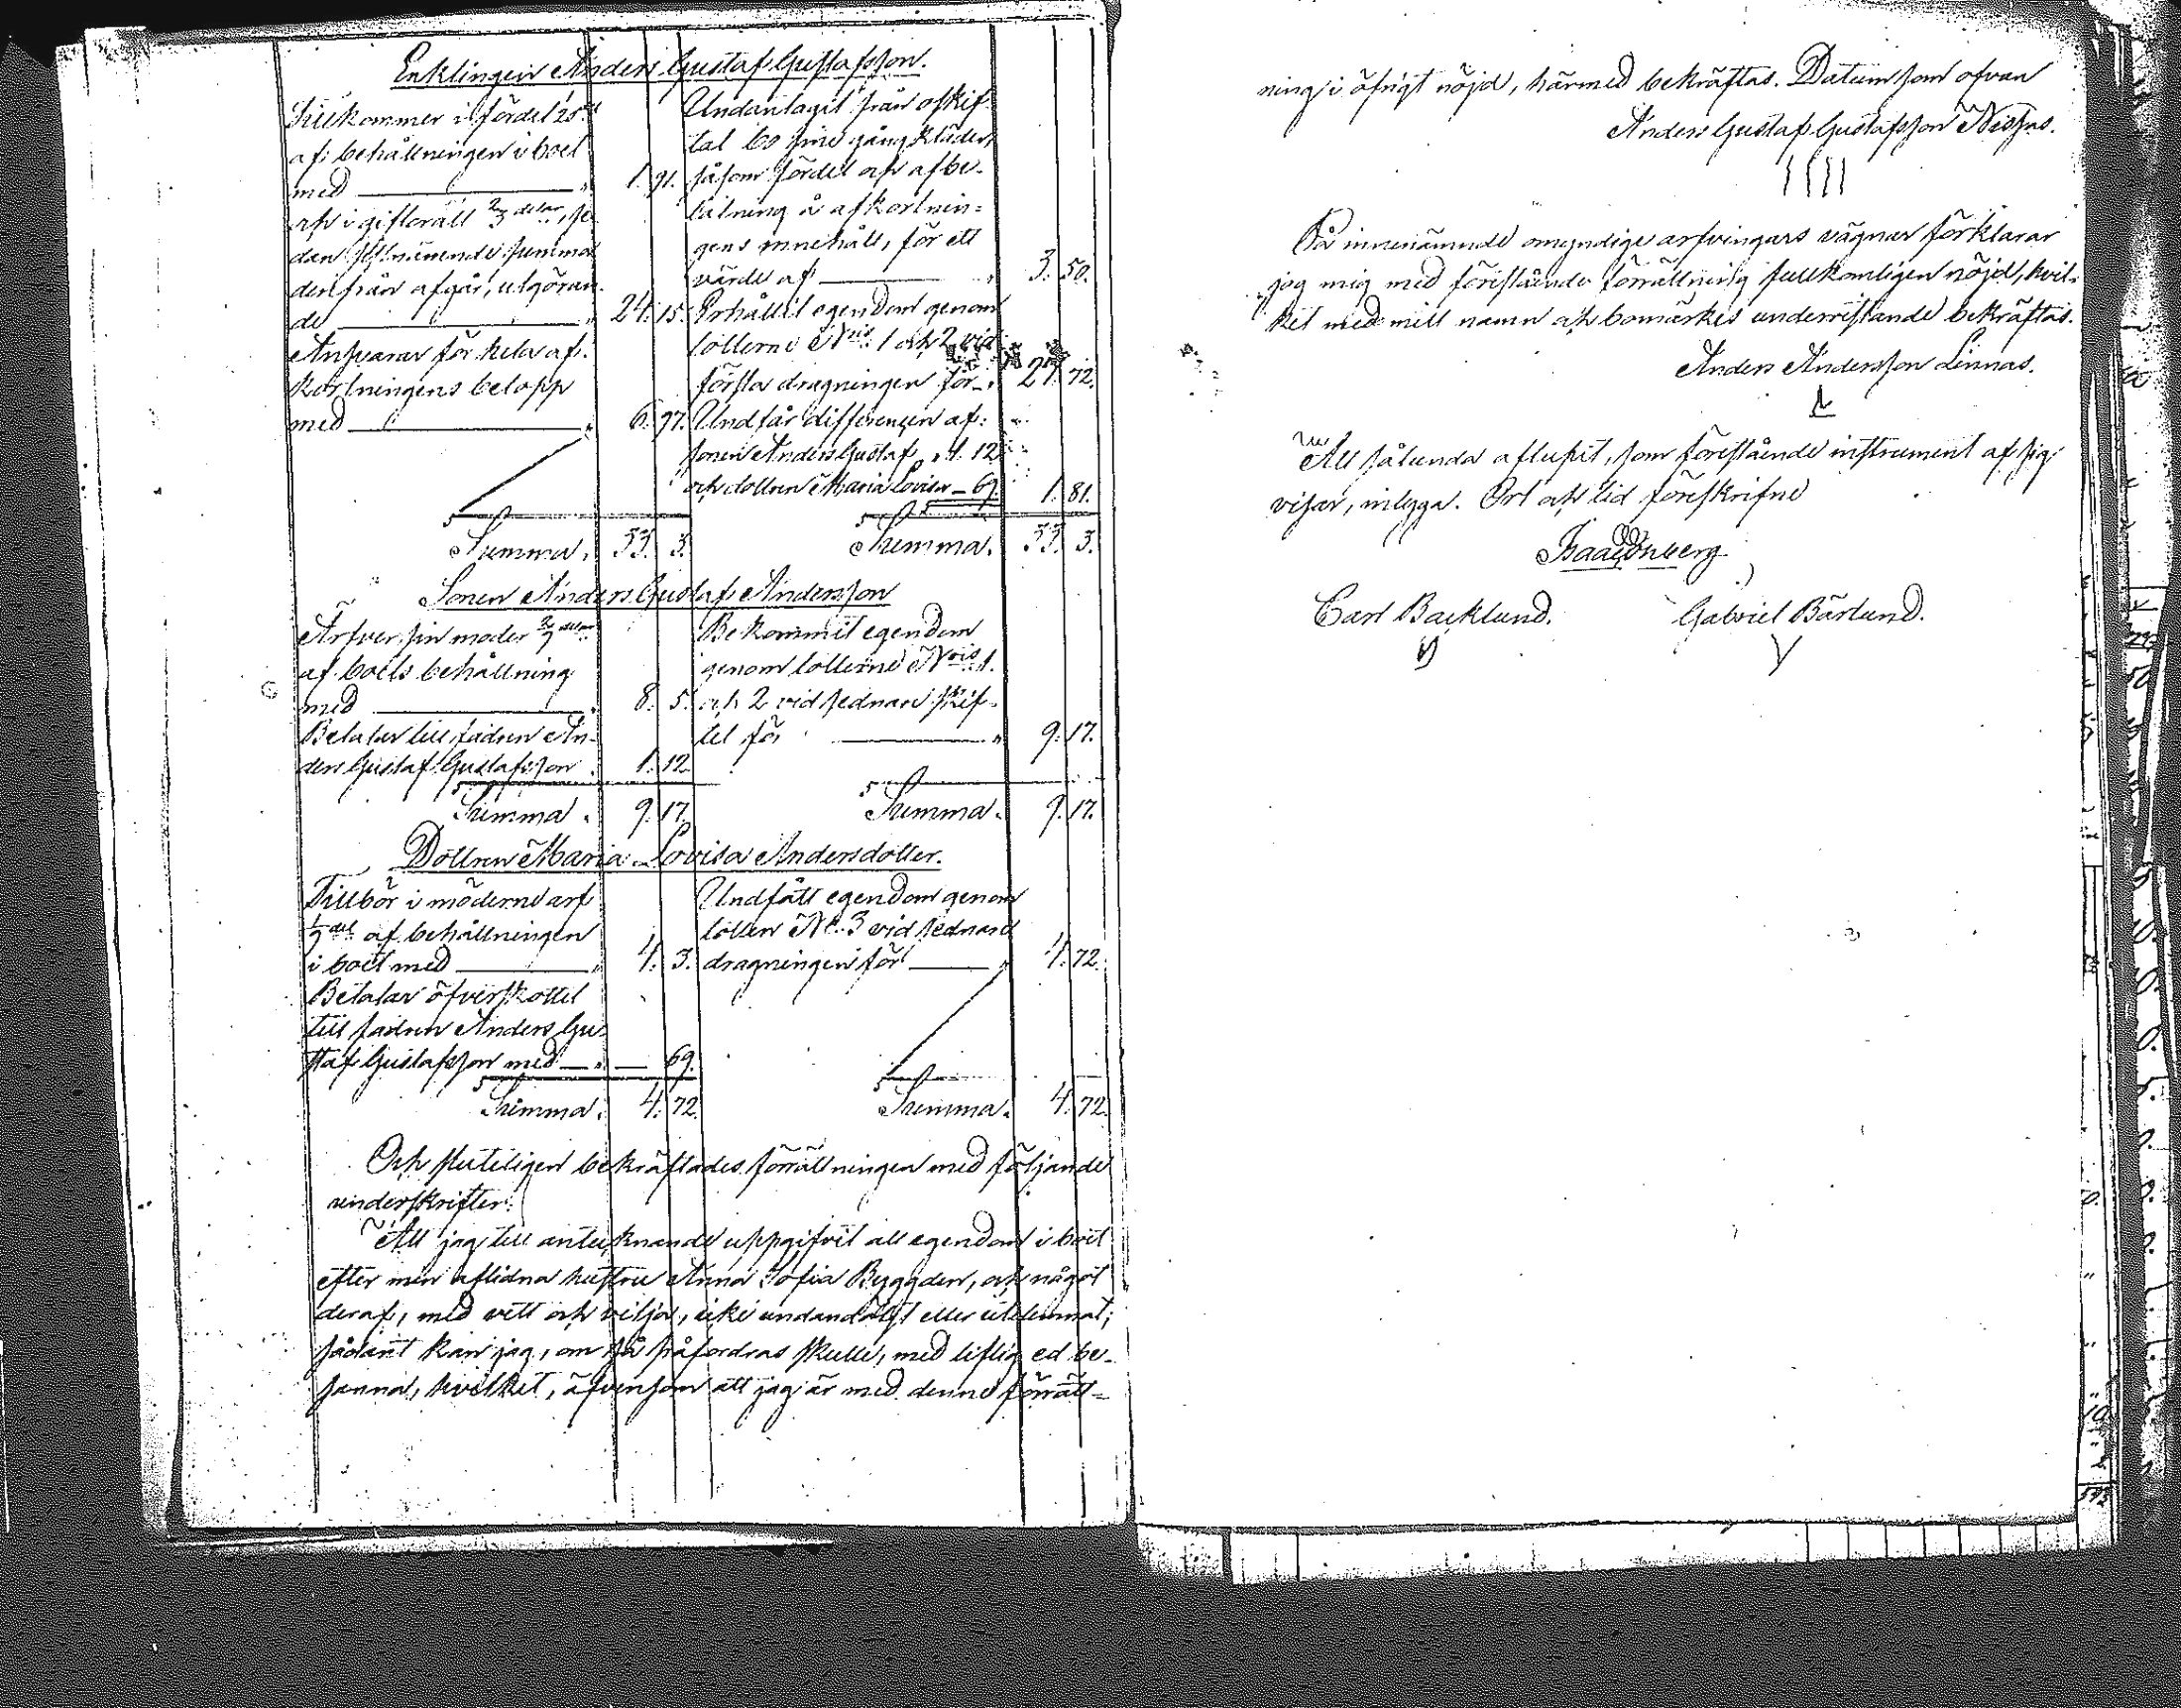 Enklingen Anders Gustaf Gustafsson.
Tillkommer i fördel 20del
af behållningen i boet
med " 1. 91.
och i giftorätt 2/3 delar, se-
dan sistnämnde summa
derifrån afgår, utgöran-
de " 24. 15.
Ansvarar för hela af-
kortningens belopp
med " 6. 97.
Summa. 33. 3.
Undantagit från oskif-
tat bo sine gångkläder,
såsom fördel och afbe-
talning å afkortnin-
gens innehåll, för ett
värde af " 3. 50.
Erhållit egendom genom
lotterne Nris 1 och 2 vid
första dragningen för " 27. 72.
Undfår differencen af:
sonen Anders Gustaf " 1. 12
och dottren Maria Lovisa — 69. 1. 81.
Summa. 33. 3.
Sonen Anders Gustaf Andersson
Ärfver sin moder 2/7 delar
af boets behållning
med " 8. 5.
Betalar till fadren An-
ders Gustaf Gustafsson 1. 12
Summa. 9. 17.
Bekommit egendom
genom lotterne Nris 1.
och 2 vid sednare skif-
tet för " 9. 17.
Summa. 9. 17.
Dottren Maria Lovisa Andersdotter.
Tillbör i möderne arf
1/7 del af behållningen
i boet med " 4. 3.
Betalar öfverskottet
till fadren Anders Gu-
staf Gustafsson med " — 69.
Summa. 4. 72.
Undfått egendom genom
lotten No 3 vid sednare
dragningen för " 4. 72.
Summa. 4. 72.
Och sluteligen bekräftades förrättningen med följande
underskrifter:
Att jag till antecknande uppgifvit all egendom i boet
efter min aflidna hustru Anna Sofia Byggden, och något
deraf, med vett och vilja, icke undandöljt eller utelemnat;
sådant kan jag, om så påfordras skulle, med liflig ed be-
sanna, hvilket, äfvensom att jag är med denne förrätt-
ning i öfrigt nöjd, härmed bekräftas. Datum som ofvan
Anders Gustaf Gustafsson
På innenämnde omyndige arfvingars vägnar förklarar
jag mig med förestående förrättning fullkomligen nöjd, hvil-
ket med mitt namn och bomärkes underristande bekräftas.
Anders Andersson Linnas.
Att sålunda aflupit, som förestående instrument af sig
visar, intyga. Ort och tid föreskrifne
Carl Backlund. Gabriel Bärlund.